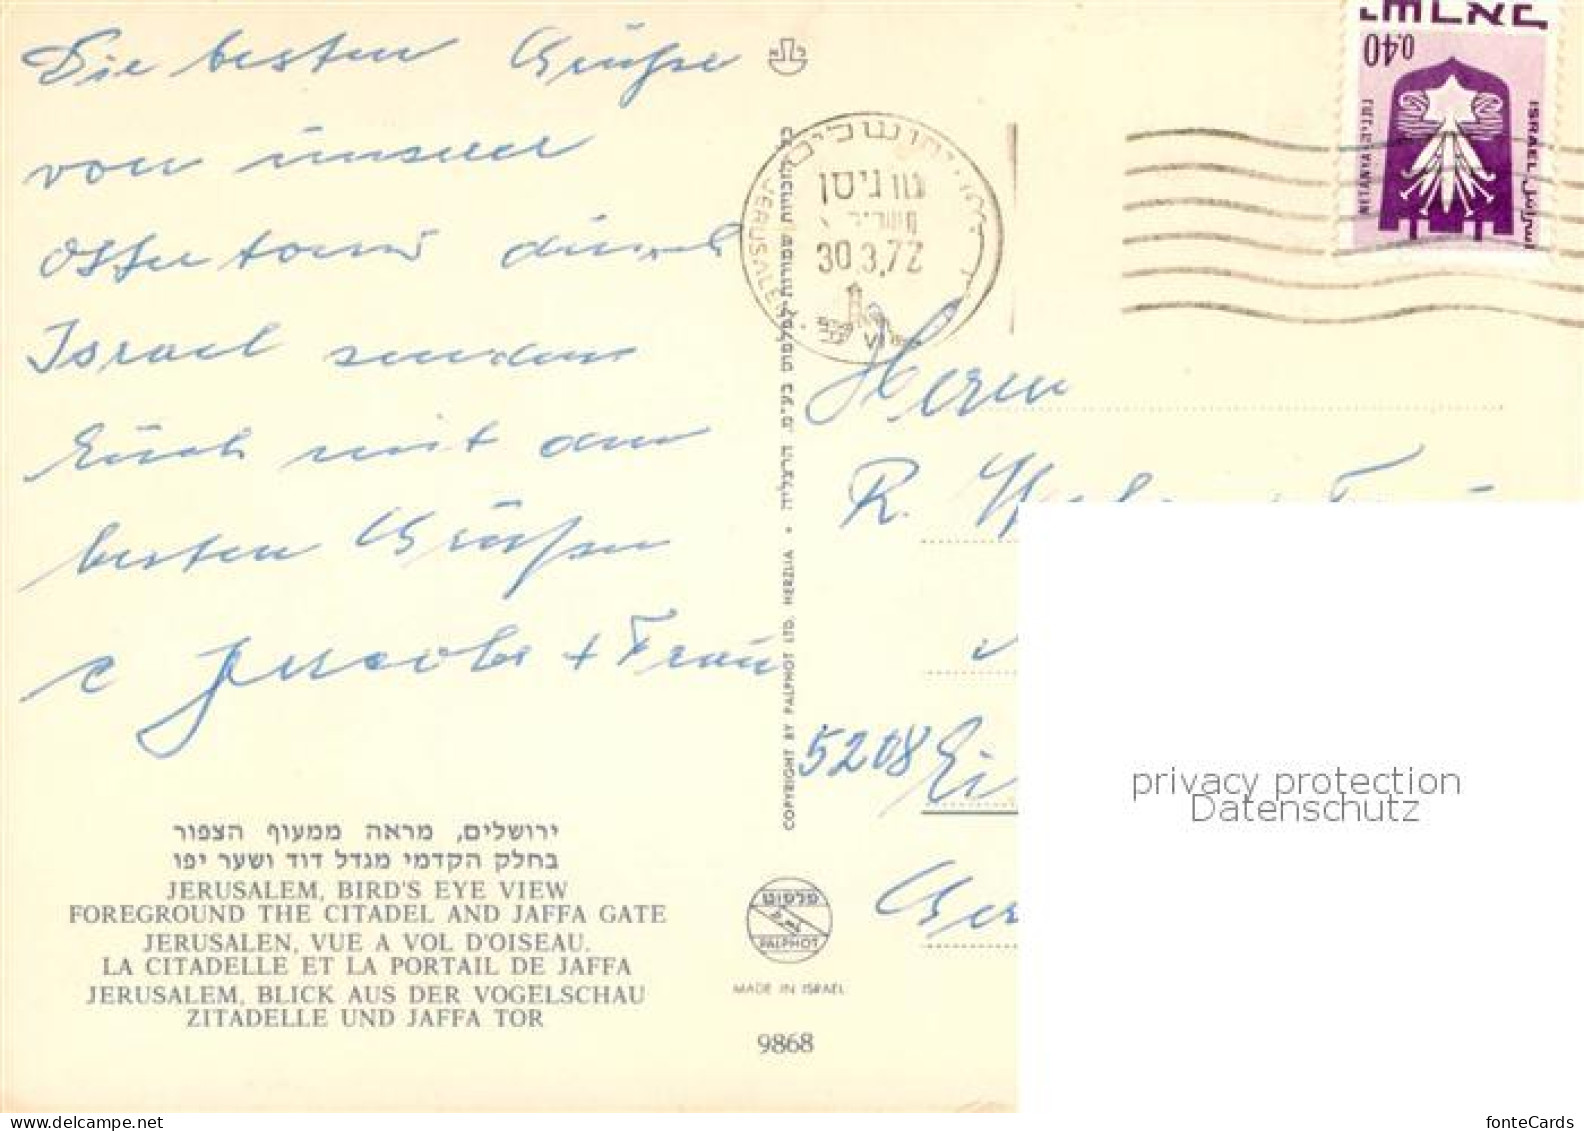 Die besten Grüsse
von unserer
Ostertour durch
Israel senden
Euch mit den
besten Grüssen
Jacobs + Frau
ירושלים, מראה ממעוף הצפור
בחלק הקדמי מגדל דוד ושער יפו
JERUSALEM, BIRD'S EYE VIEW
FOREGROUND THE CITADEL AND JAFFA GATE
JERUSALEN, VUE A VOL D'OISEAU.
LA CITADELLE ET LA PORTAIL DE JAFFA
JERUSALEM, BLICK AUS DER VOGELSCHAU
ZITADELLE UND JAFFA TOR
כל הזכויות שמורות לפלפוט בע״מ. הרצליה • COPYRIGHT BY PALPHOT LTD. HERZLIA
פלפוט
PALPHOT
MADE IN ISRAEL
9868
JERUSALEM
30.3.72
VI
ישראל
0.40
נתניה NETANYA
ISRAEL اسرائيل
Herrn
R.
5208 Ei
Ger
privacy protection
Datenschutz
fonteCards